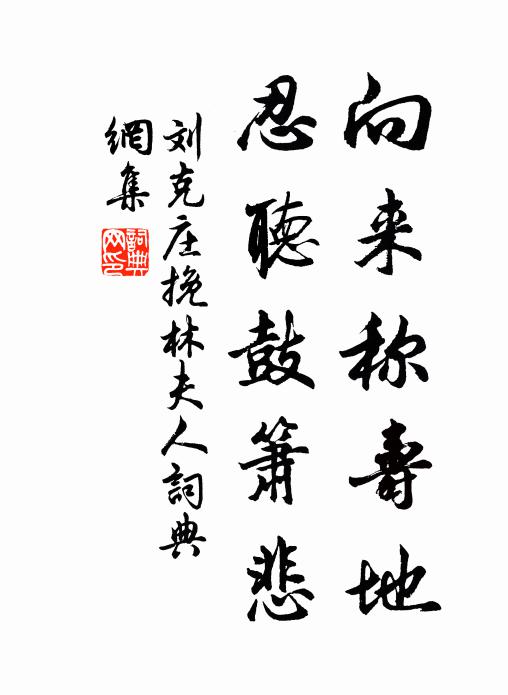 向来称壽地
忍聽鼓簫悲
刘克庄挽林夫人詞典
網集
詞典网印